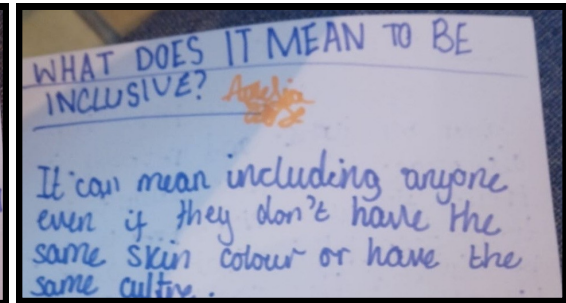 WHAT DOES IT MEAN TO BE
INCLUSIVE?
It can mean including anyone
even if they don't have the
same skin colour or have the
same